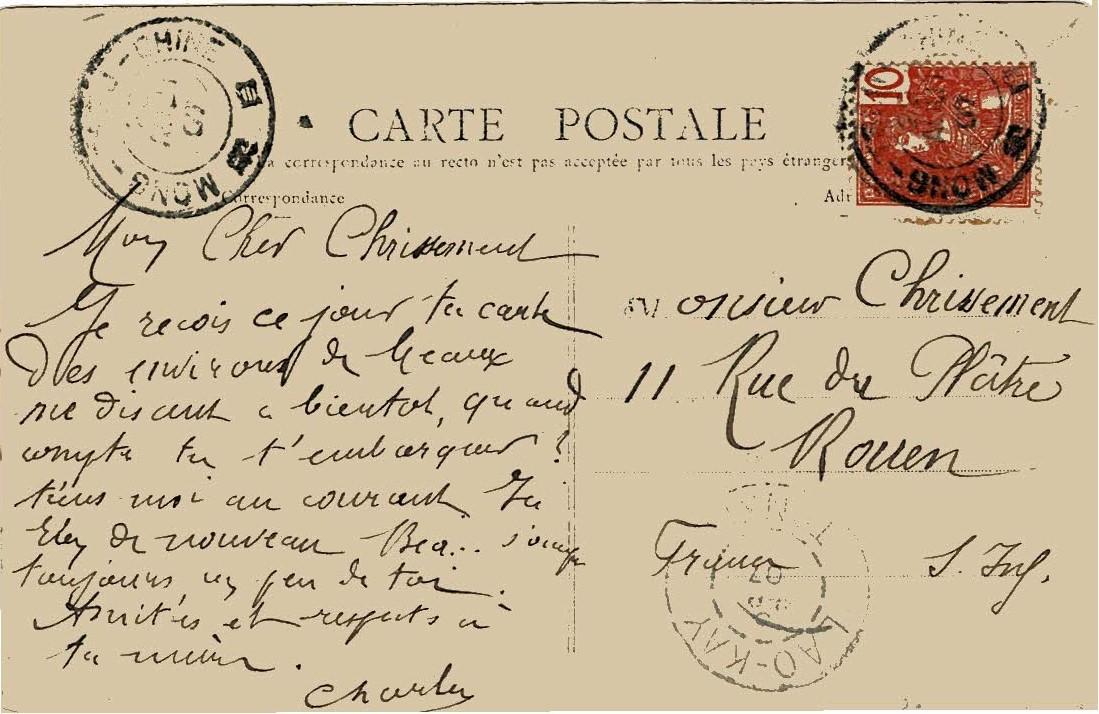 -CHINE
MONG-
CARTE POSTALE
10
MONG-
a correspondance au recto n'est pas acceptée par tous les pays étranger
Correspondance
Adr
Mon Cher Chrissement
Je reçois ce jour ta carte
des environs de Meaux
me disant a bientot, quand
compte tu t'embarquer ?
tiens moi au courant.
de nouveau
toujours un peu de toi.
Amitiés et respects à
ta mère.
Charles
Monsieur Chrissement
11 Rue du Plâtre
Rouen
France S. Inf.
LAO-KAY
07